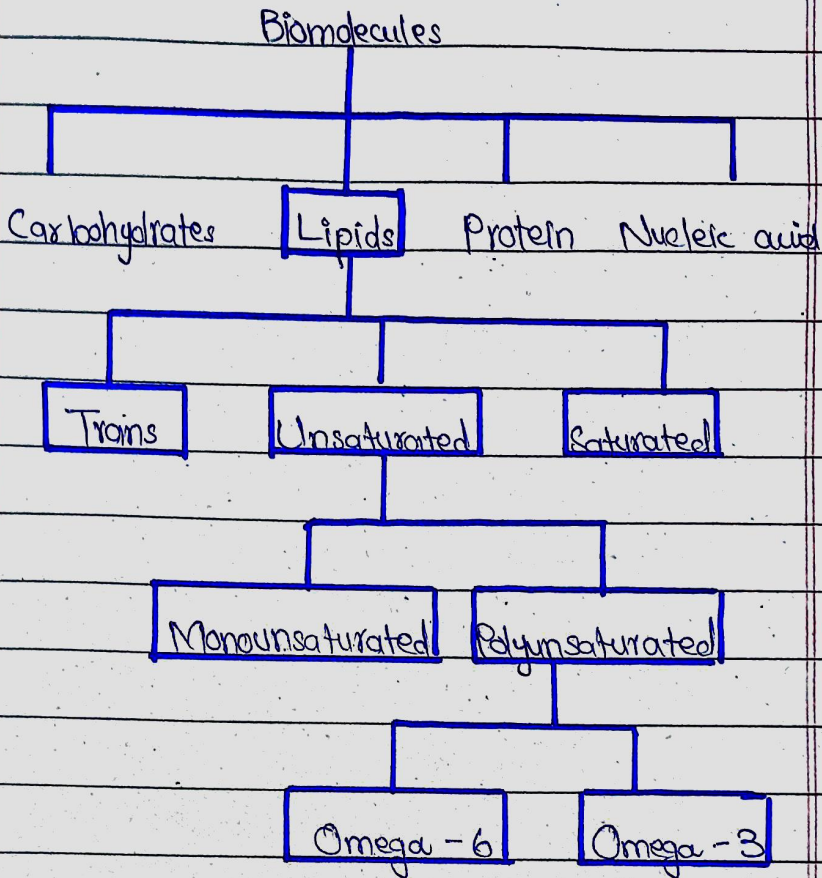 Biomolecules
Carbohydrates Lipids Protein Nucleic acid
Trains Unsaturated Saturated
Monounsaturated Polyunsaturated
Omega-6 Omega-3